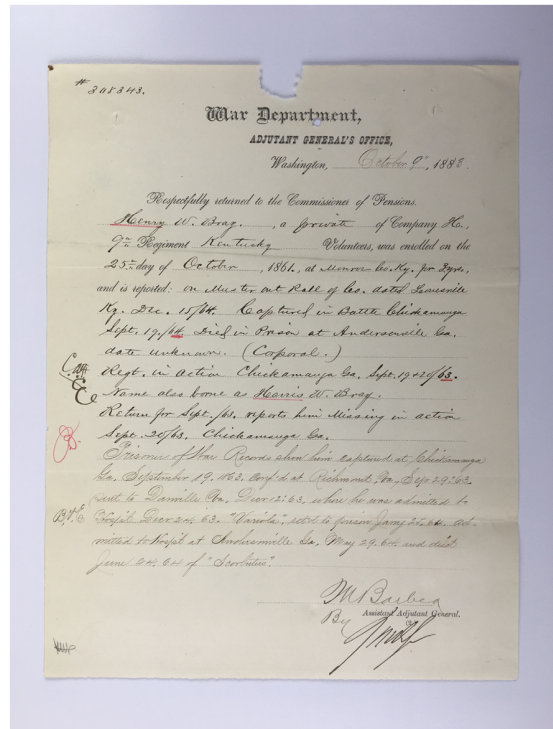 # 308343.
War Department,
ADJUTANT GENERAL'S OFFICE,
Washington, October 9", 1883.
Respectfully returned to the Commissioner of Pensions.
Henry W. Brag., a private of Company H.,
9th Regiment Kentucky Volunteers, was enrolled on the
25th day of October, 1861, at Monroe Co. Ky. for 3 yrs,
and is reported: on Muster out Roll of Co. dated Louisville
Ky. Dec. 15/64. Captured in Battle Chickamauga
Sept. 19/64. Died in Prison at Andersonville Ga.
date unknown. (Corporal.)
Regt. in action Chickamauga Ga. Sept. 19+20/63.
Name also borne as Harris W. Brag.
Return for Sept./63. reports him Missing in action
Sept. 20/63. Chickamauga Ga.
Prisoner of War Records show him captured at Chickamauga
Ga. September 19. 1863. Conf'd at Richmond, Va, Sep 29. 63.
sent to Danville Va. Decr 12. 63. where he was admitted to
Hospil Decr 24. 63. "Variola" ret'd to prison Jany 26. 64. ad-
mitted to Hospil at Andersonville Ga. May 29. 64 and died
June 24. 64 of "Scorbutus".
M Barber
Assistant Adjutant General.
By